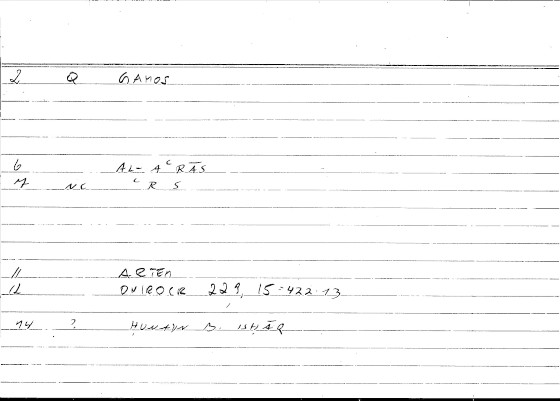 2 Q GAMOS
6 AL- AᶜRĀS
7 NC ᶜR S
11 ARTEM
12 ONIROCR 229, 15 = 422.13
14 ? ḤUNAYN B. ISḤĀQ